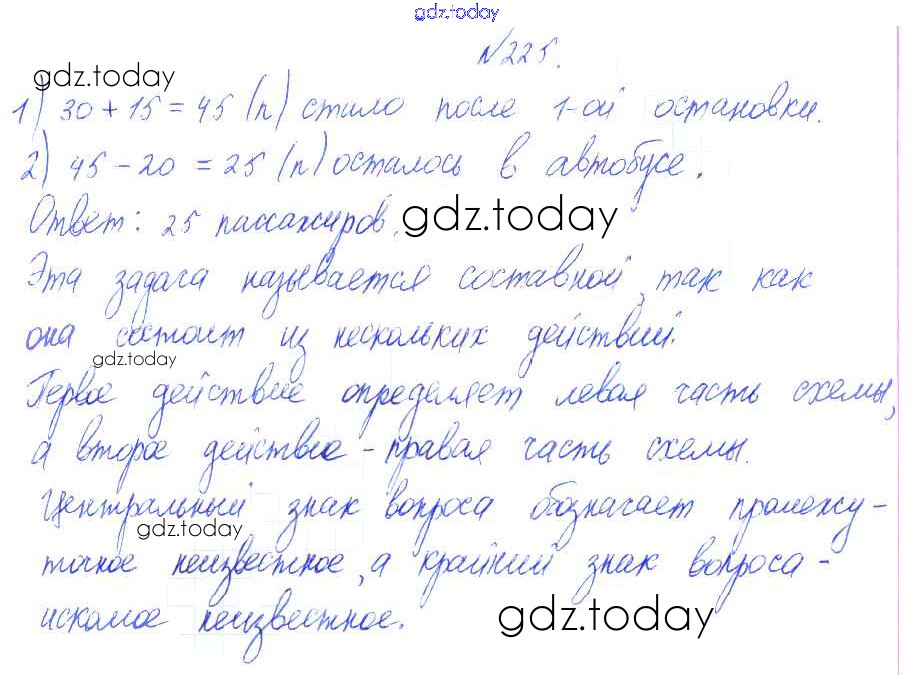 gdz.today
№225.
gdz.today
1) 30 + 15 = 45 (п) стало после 1-ой остановки.
2) 45 - 20 = 25 (п) осталось в автобусе.
Ответ: 25 пассажиров.
gdz.today
Эта задача называется составной, так как
она состоит из нескольких действий.
gdz.today
Первое действие определяет левая часть схемы,
а второе действие - правая часть схемы.
Центральный знак вопроса обозначает промежу-
gdz.today
точное неизвестное, а крайний знак вопроса -
искомое неизвестное.
gdz.today